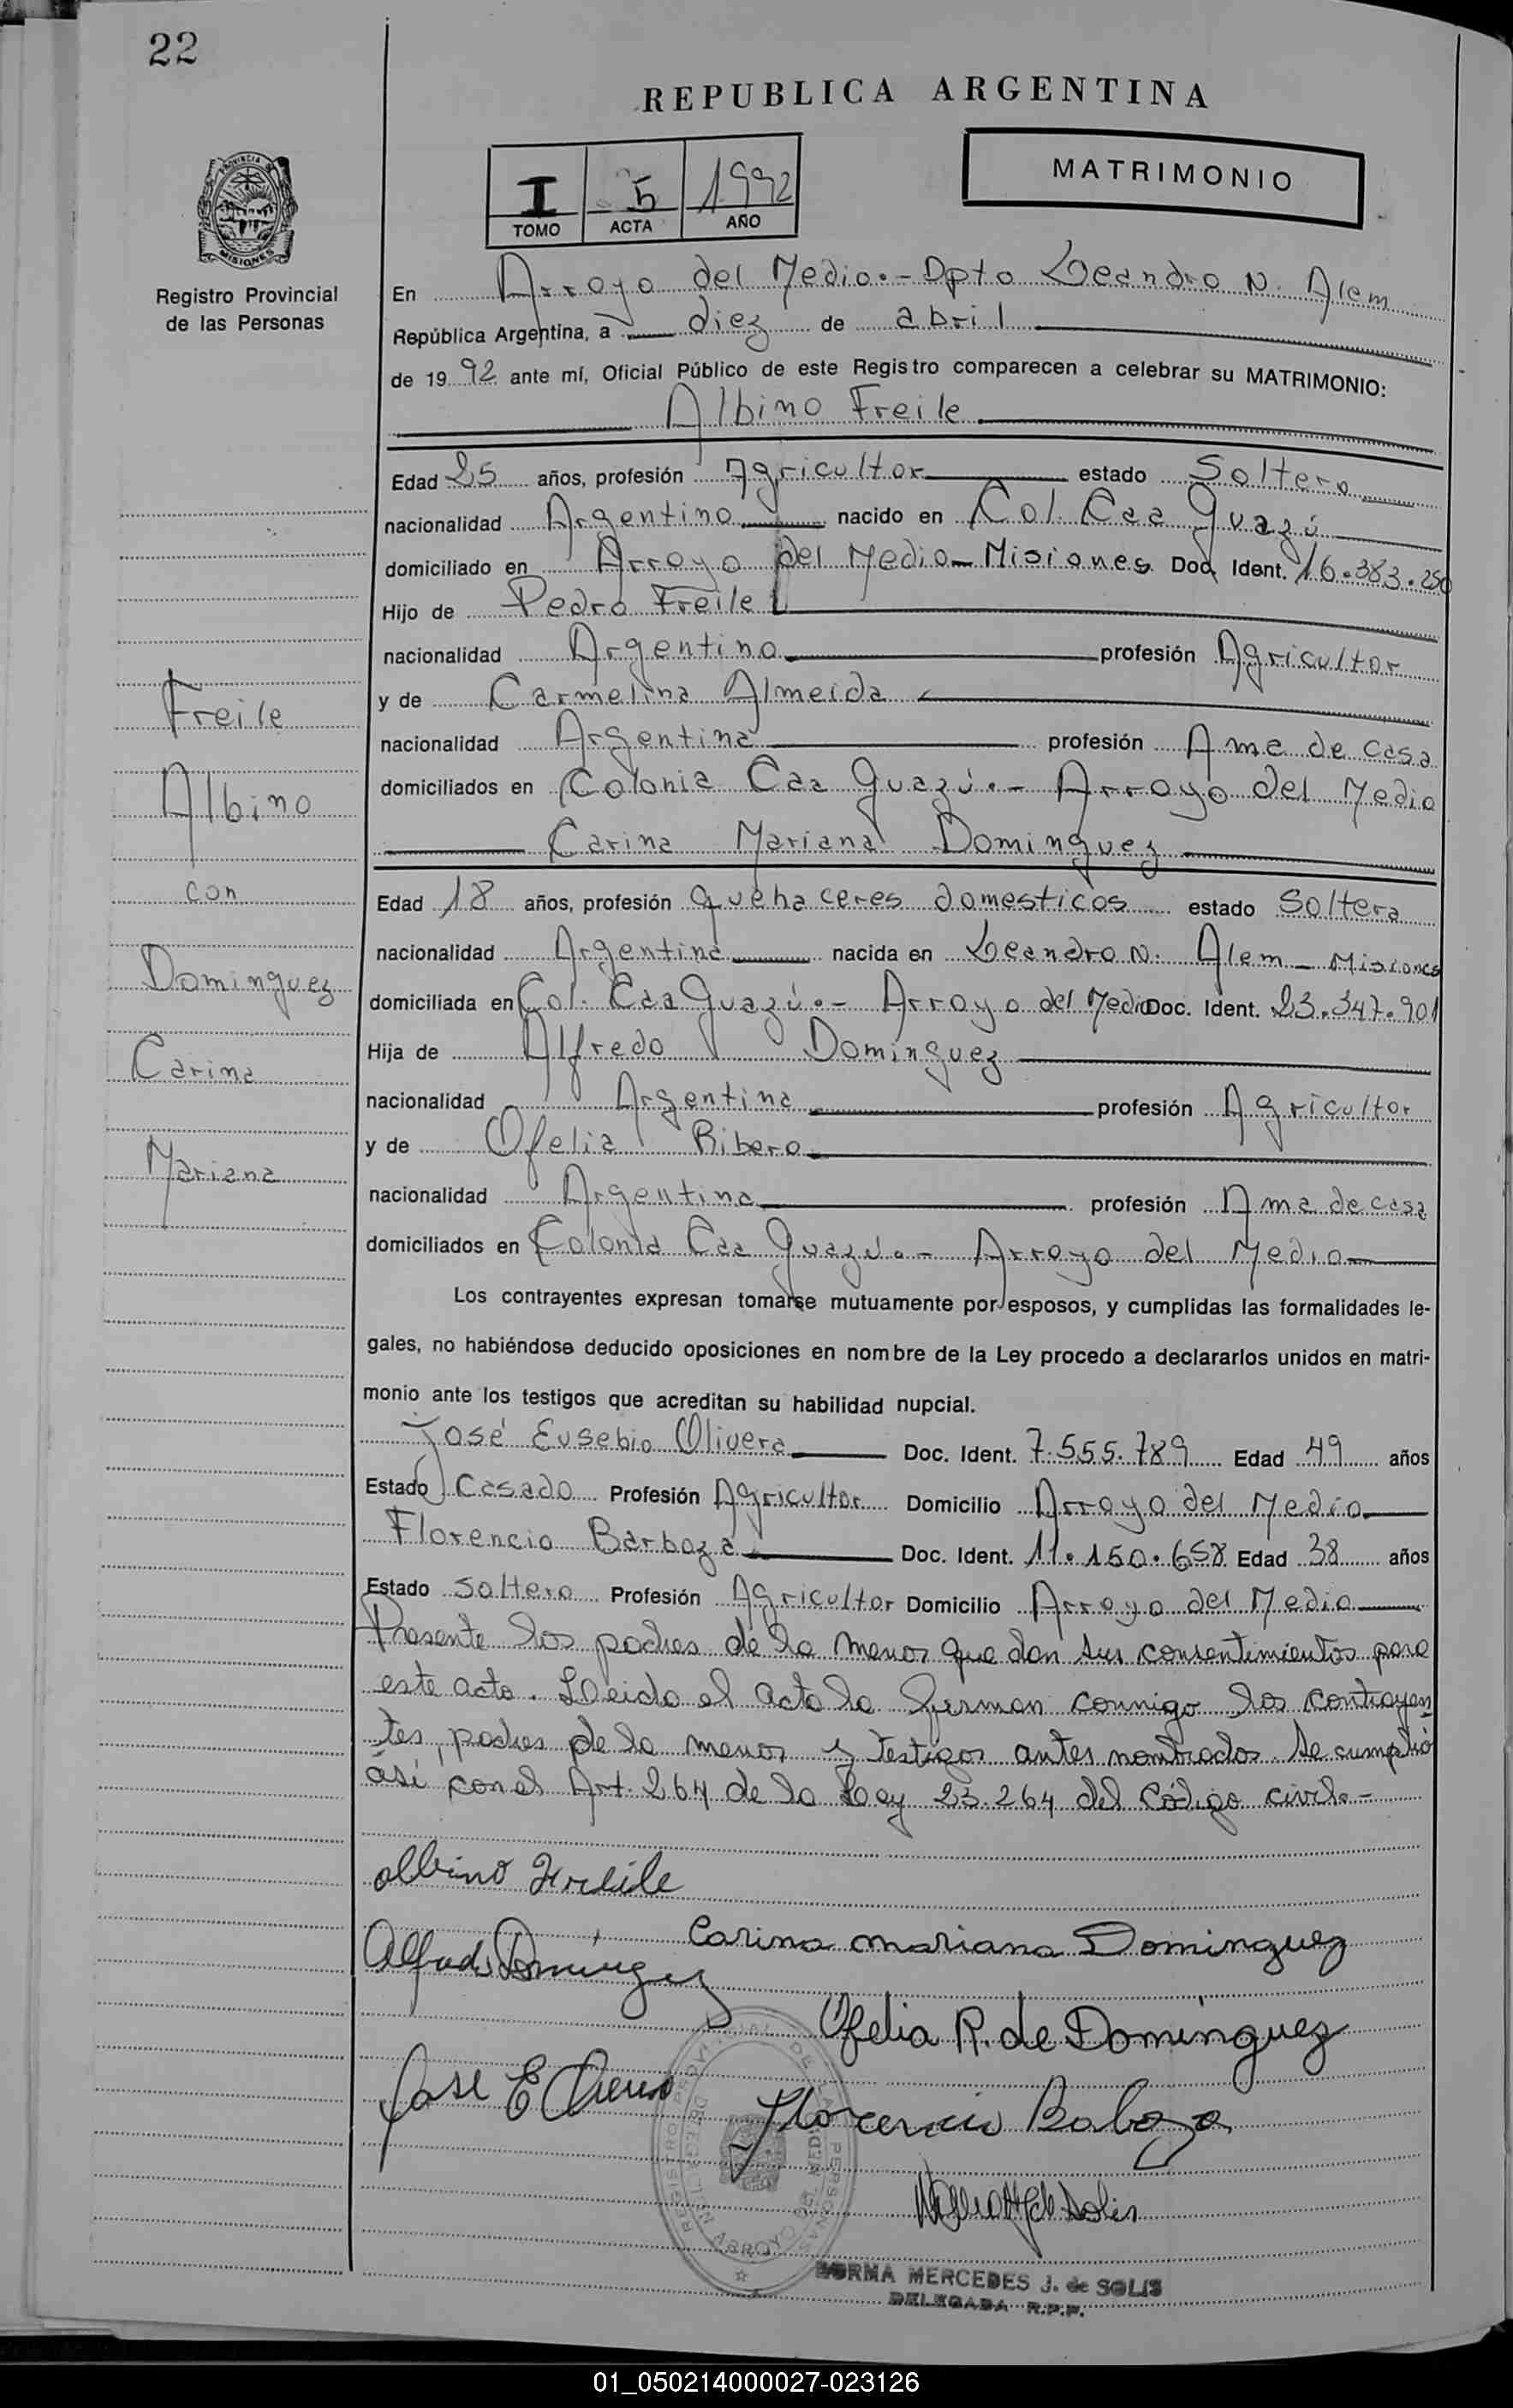 22
REPUBLICA ARGENTINA
MATRIMONIO
I 5 1992
TOMO ACTA AÑO
PROVINCIA DE
MISIONES
Registro Provincial
de las Personas
En Arroyo del Medio.- Dpto Leandro N. Alem
República Argentina, a diez de abril
de 1992 ante mí, Oficial Público de este Registro comparecen a celebrar su MATRIMONIO:
Albino Freile
Edad 25 años, profesión Agricultor estado Soltero
nacionalidad Argentino nacido en Col. Caa Guazú
domiciliado en Arroyo del Medio - Misiones Doc. Ident. 16.383.250
Hijo de Pedro Freile
nacionalidad Argentino profesión Agricultor
y de Carmelina Almeida
nacionalidad Argentina profesión Ama de casa
domiciliados en Colonia Caa Guazú.- Arroyo del Medio
Carina Mariana Dominguez
Edad 18 años, profesión quehaceres domesticos estado Soltera
nacionalidad Argentina nacida en Leandro N. Alem - Misiones
domiciliada en Col. Caa Guazú.- Arroyo del Medio Doc. Ident. 23.347.901
Hija de Alfredo Dominguez
nacionalidad Argentina profesión Agricultor
y de Ofelia Ribero
nacionalidad Argentina profesión Ama de casa
domiciliados en Colonia Caa Guazú.- Arroyo del Medio
Freile
Albino
con
Dominguez
Carina
Mariana
Los contrayentes expresan tomarse mutuamente por esposos, y cumplidas las formalidades le-
gales, no habiéndose deducido oposiciones en nombre de la Ley procedo a declararlos unidos en matri-
monio ante los testigos que acreditan su habilidad nupcial.
José Eusebio Olivera Doc. Ident. 7.555.789 Edad 49 años
Estado Casado Profesión Agricultor Domicilio Arroyo del Medio
Florencio Barboza Doc. Ident. 11.150.658 Edad 38 años
Estado Soltero Profesión Agricultor Domicilio Arroyo del Medio
Presente los padres de la menor que dan sus consentimientos para
este acto. Leida el acta la firman conmigo los contrayen
tes, padres de la menor y testigos antes nombrados. Se cumplió
así con el Art. 264 de la Ley 23.264 del Código civil.-
Albino Freile
Carina mariana Dominguez
Alfredo Dominguez
Ofelia R. de Dominguez
Jose E
Florencio
REGISTRO PROVINCIAL DE LAS PERSONAS
DELEGACION ARROYO DEL MEDIO
NORMA MERCEDES J. de SOLIS
DELEGADA R.P.P.
01_050214000027-023126